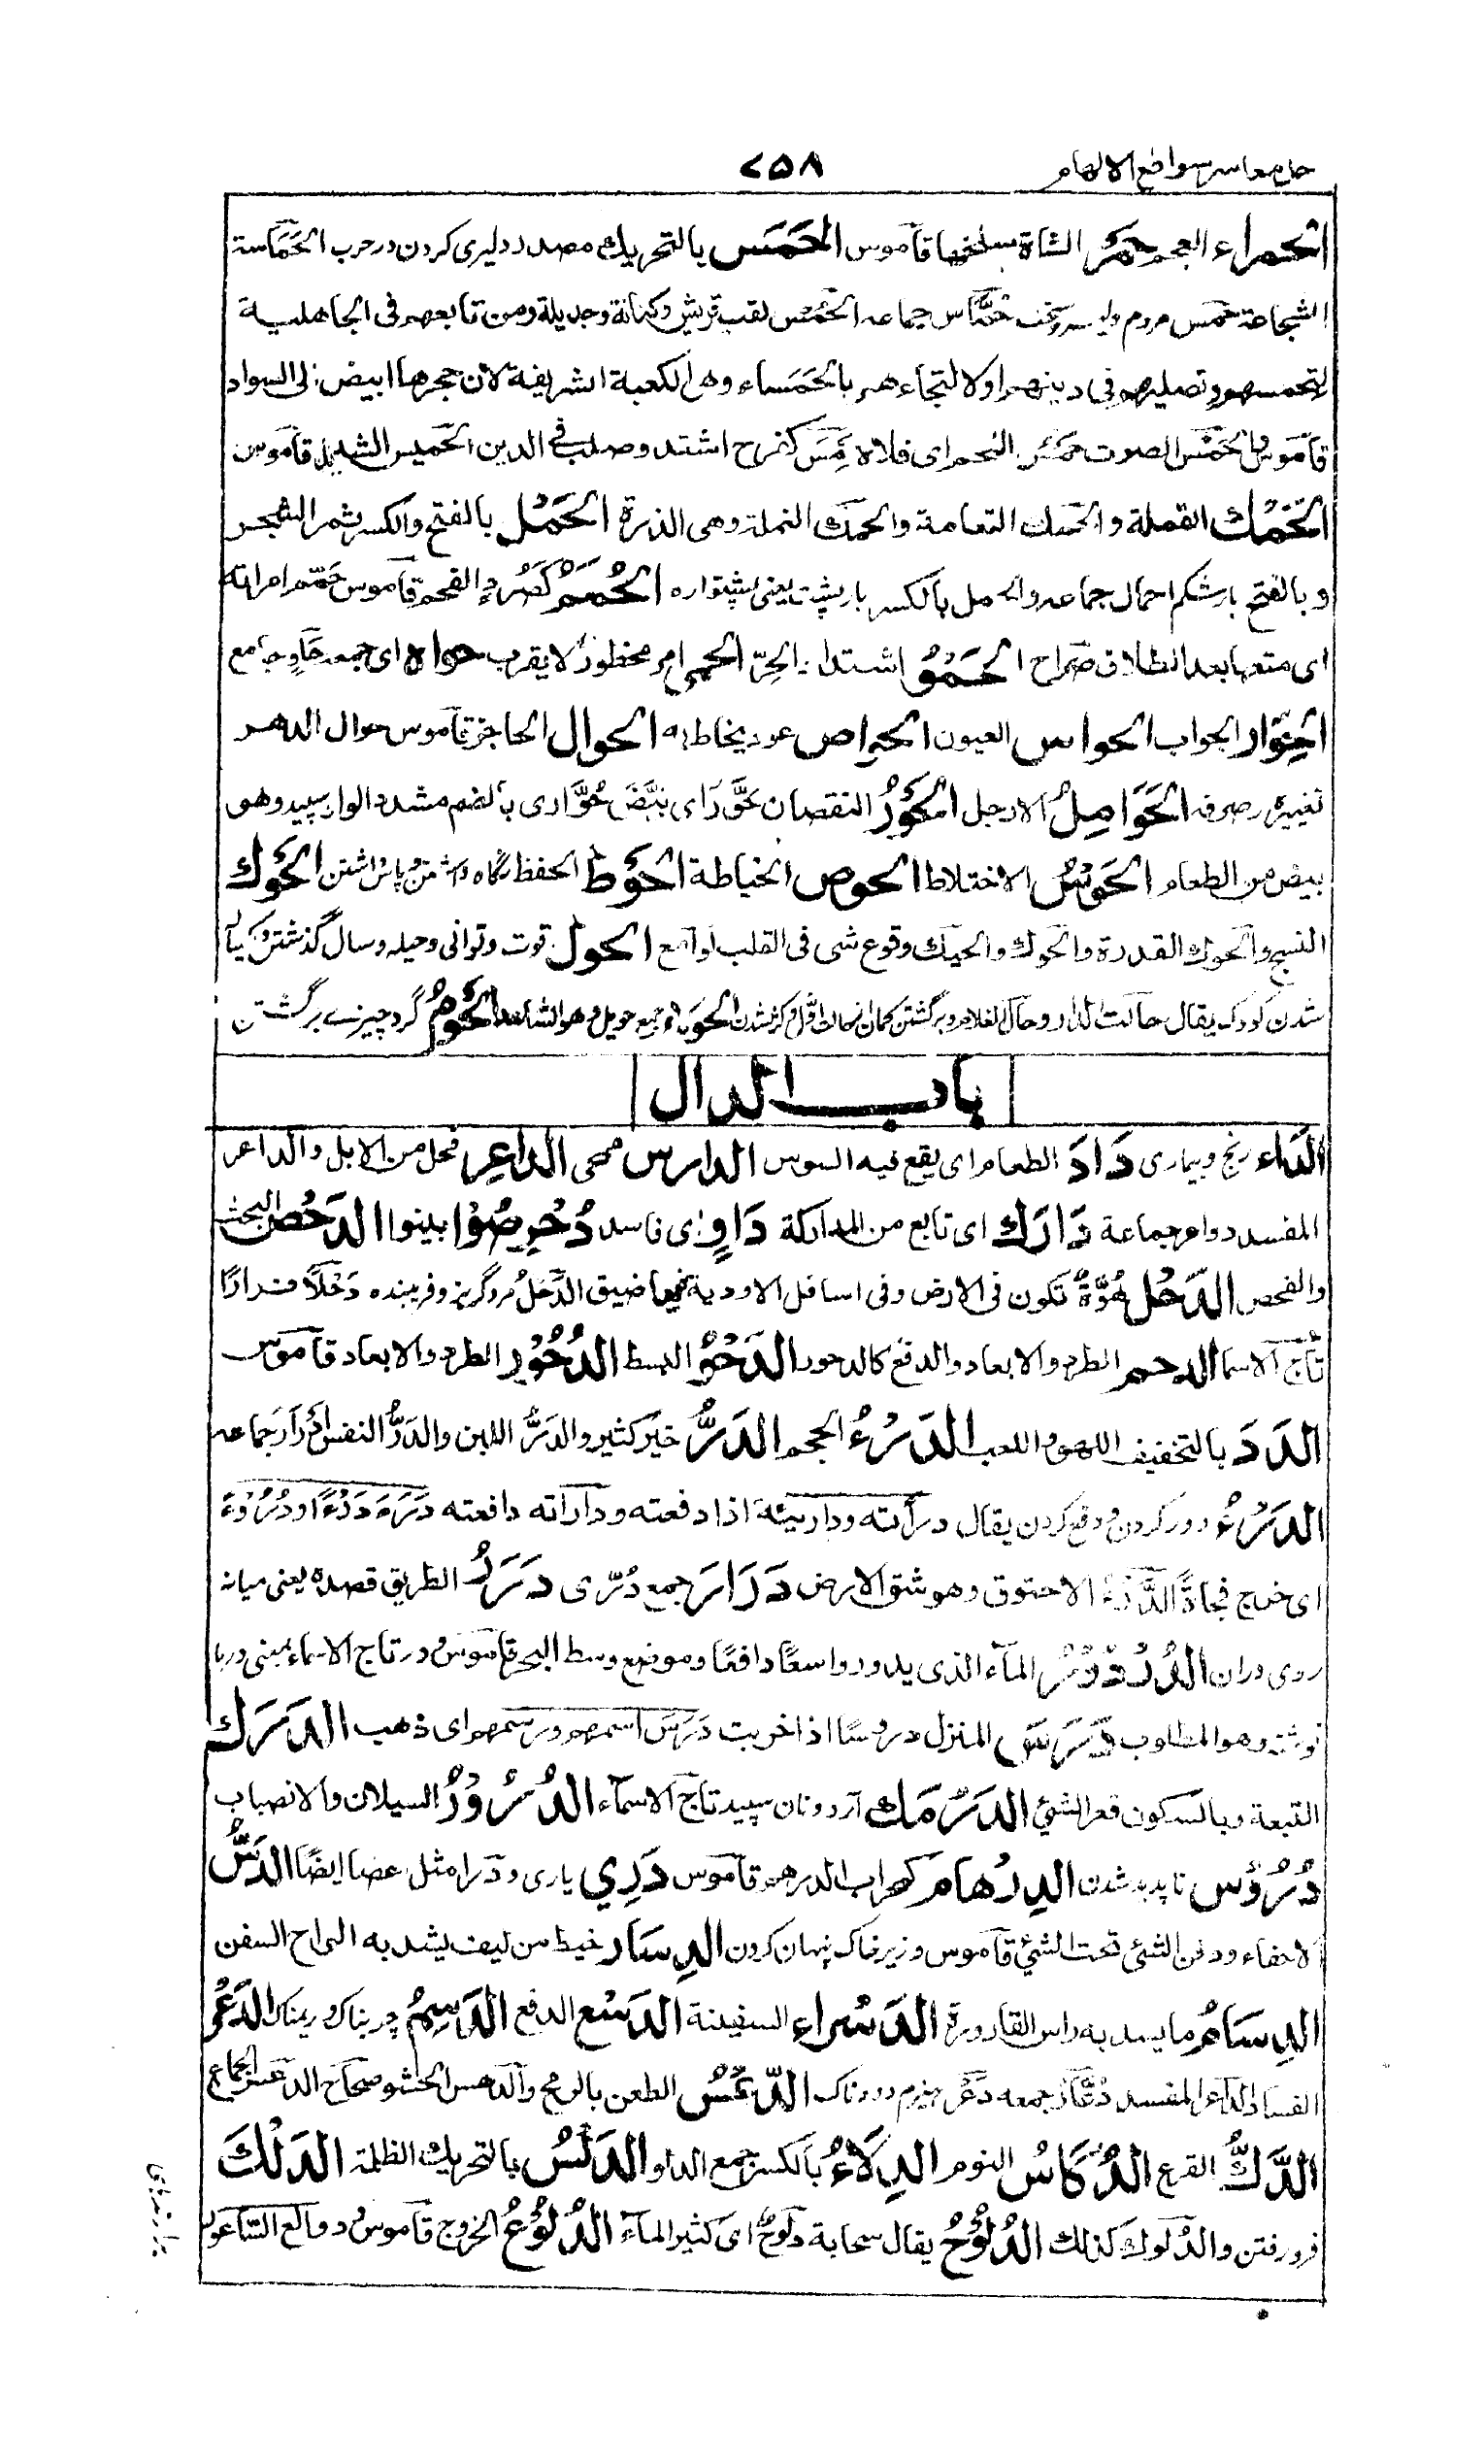 حل معاسر سواطع الالهام
۷۵۸
الحمراء العجم حَمَر الشاة سلخها قاموس الحَمَس بالتحريك مصدر دليرى كردن در حرب الحَمَاسة
الشجاعة حَمس مردم دلير وسخت جماعه الحُمس لقب قريش وكنانة وجديلة ومن تابعهم فى الجاهلية
لتحمسهم وتصلبهم فى دينهم اولالتجاءهم بالحَمَساء وهى الكعبة الشريفة لان حجرها ابيض الى السواد
قاموس الحَمْس الصوت حمس اللحم اى قلاه حَمِسَ كفرح اشتد وصلب فى الدين الحميس الشديد قاموس
الحَمْك القملة والحمك النعامة والحمك النملة وهى الذرة الحَمْل بالفتح والكسر ثمر الشجر
وبالفتح بار شكم احمال جماعه والحمل بالكسر بار پشت يعنى پشتواره الحُمَمُ كصُرد الفحم قاموس حَمّم امراته
اى متعها بعد الطلاق صراح الحَمْوُ اشتداد الحَرّ الحمى امر محظور لا يقرب حواه اى جمعه حَاوٍ جامع
الحِوَار الجواب الحواس العيون الحواص عود يخاط به الحوال الحاجز قاموس حوال الدهر
تغيره وصرفه الحَوَامِلُ الارجل الحَوْرُ النقصان حَوَّرَ اى بَيَّضَ حُوَّارى بالضم مشدد الواو سپيد وهو
بيض من الطعام الحَوْسُ الاختلاط الحوص الخياطة الحَوْط الحفظ نگاه داشتن و پاس داشتن الحَوْك
النسج والحوك القدرة والحوك والحيك وقوع شى فى القلب لوامع الحول قوت وتوانى وحيله وسال گذشتن
شدن كودك يقال حالت الدار وحال الغلام وبرگشتن كمان از حالت اول وكژ شدن جمع حويل وهو الشاهد الحَوْمُ گرد چيزے برگشتن
باب الدال
الدَاء رنج وبيمارى دَادَ الطعام اى يقع فيه السوس الدارس ممحى الداعِر فحل من الابل والداعر
المفسد دوام جماعة دَارَك اى تابع من المداركة دَاوٍ اى فاسد دُحِرِصُوْا بينوا الدَحْص البحث
والفحص الدَحْل هُوَّةٌ تكون فى الارض وفى اسافل الاودية فيها ضيق الدَّحْلُ مرد گريز وفريبنده دَخَلاً
تاج الاسما الدحم الطرد والابعاد والدفع كالدحور الدَحْوُ البسط الدُحُوْر الطرد والابعاد قاموس
الدَدَ بالتخفيف اللهو واللعب الدَرْءُ الحجم الدَرُّ خير كثير والدَرُّ اللبن والدَرُّ النفس جماعه
الدَرْءُ دور كردن و دفع كردن يقال درأته وداريته اذا دفعته وداراته دافعته دَرَءَ دَرْءًا ودُرُوْءً
اى خرج فجاةً الدَّرْءُ الاحتوق وهو شق الارض دَرَارَ جمع دُرّى دَرَرُ الطريق قصده يعنى ميانه
روى دران الدُرْدُوْرُ المآء الذى يدور واسعًا دافعًا وموضع وسط البحر قاموس و در تاج الاسماء بمعنى دريا
نوشته وهو المطلوب دَرَسَ المنزل دروسًا اذا خربت دَرَسَ اسمهم ورسمهم اى ذهب الدَرَك
التبعة وبالسكون قعر الشئ الدَرْمَك آرد ونان سپيد تاج الاسماء الدُرُوْرُ السيلان والانصباب
دُرُوْس ناپديد شدن الدِرْهَام كمحراب الدرهم قاموس دَرِي يارى ودرا مثل عصا ايضًا الدَسُّ
الاخفاء ودفن الشئ تحت الشئ قاموس وزير خاك پنهان كردن الدِسَار خيط من ليف يشد به الواح السفن
الدِسَامُ ما يسد به راس القارورة الدَسْراء السفينة الدَسْع الدفع الدَسِمُ چربناك وريمناك الدَعْرُ
الفساد الداعر المفسد دُعَّار جمعه دَعْر هيزم دودناك الدَّعْسُ الطعن بالرمح والدهس الحشو صحاح الدعس الجماع
الدَّكُّ القرع الدُكَاسُ النوم الدِلَاءُ بالكسر جمع الدلو الدَلَسُ بالتحريك الظلمة الدَلْكَ
فرو رفتن والدلوك كذلك الدُلُوْحُ يقال سحابة دَلوحٌ اى كثير المآء الدُلُوْعُ الخروج قاموس و دوالع